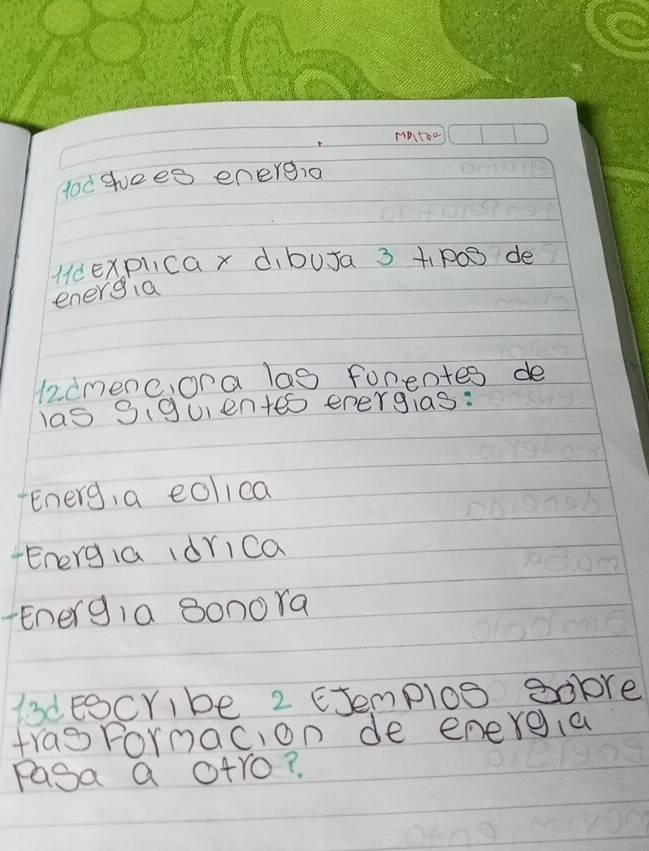 10¿ que es energia
11¿ Explica y dibuja 3 tipos de
energia
12¿ menciona las funentes de
las siguientes energias:
-Energia eolica
-Energia idrica
-Energia sonora
13¿ Escribe 2 Ejemplos sobre
trasformacion de energia
Pasa a otro?